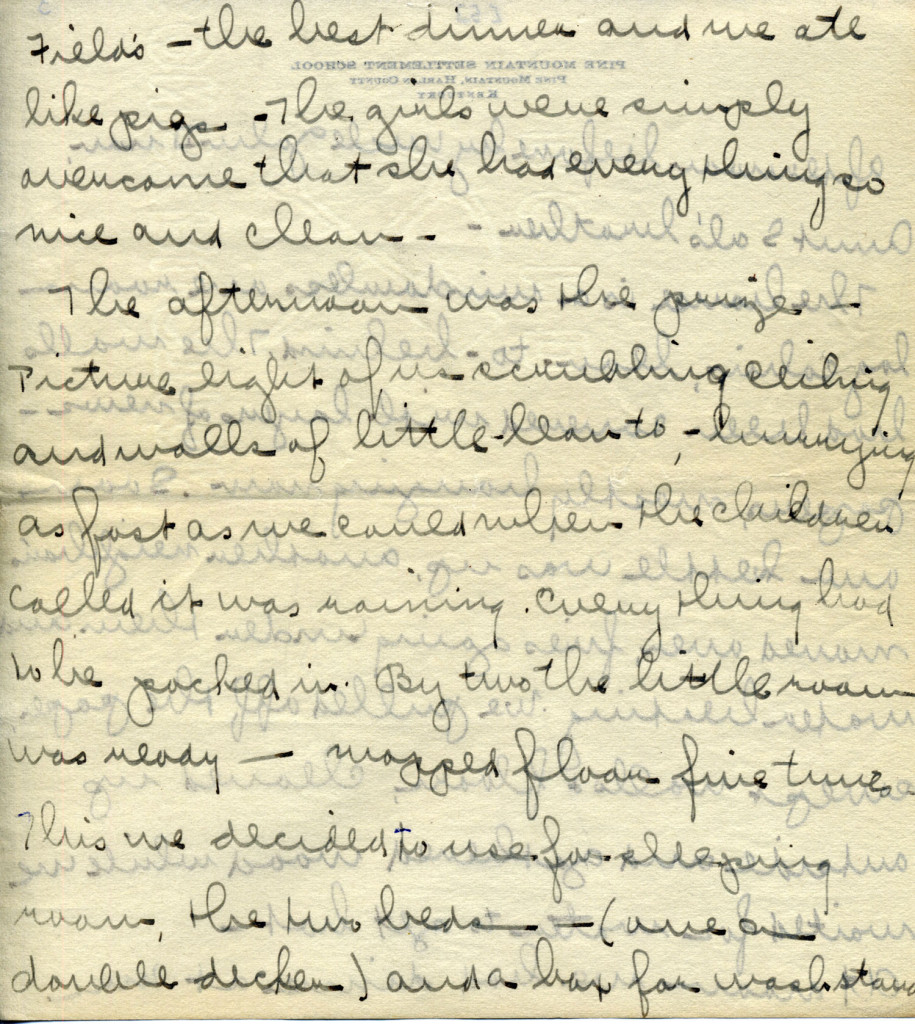 Field's - the best dinner and we ate
like pigs - The girls were simply
overcome that she had every thing so
nice and clean - -
The afternoon was the prize -
Picture eight of us scrubbing ceiling
and walls of little lean to, - hurrying
as fast as we could when the children
called it was raining. Every thing had
to be packed in. By two the little room
was ready — mopped floor five times.
This we decided to use for sleeping
room, the two beds — (one a
double decker) and a box for washstand
PINE MOUNTAIN SETTLEMENT SCHOOL
PINE MOUNTAIN, HARLAN COUNTY
KENTUCKY